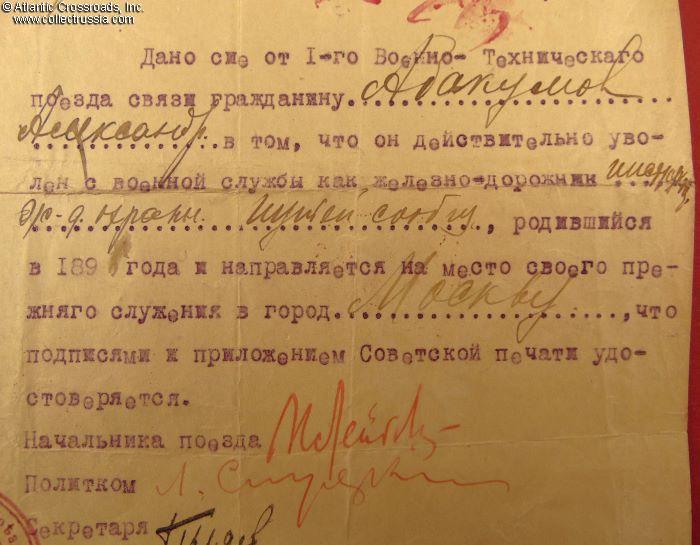 © Atlantic Crossroads, Inc.
www.collectrussia.com
Дано сие от I-го Военно-Техническаго
поезда связи гражданину. Абакумов
Александр. в том, что он действительно уво-
лен с военной службы как железно-дорожник
путей сообщ, родившийся
в 189 года и направляется на место своего пре-
жняго служения в город. Москву, что
подписями и приложением Советской печати удо-
стоверяется.
Начальника поезда
Политком
Секретаря